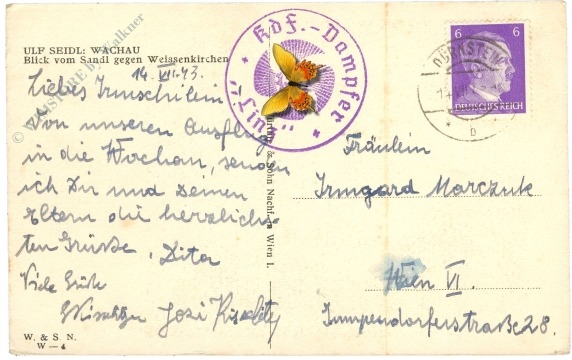 ULF SEIDL: WACHAU
Blick vom Sandl gegen Weissenkirchen
14. VII. 43.
Liebes Irmschilein
Von unseren Ausflug
in die Wachau, senden
ich Dir und Deinen
Eltern die herzlich-
sten Grüße. Dita
Viele Grüße
Josi
W. & S. N.
W — 4
KdF.-Dampfer
"Linz"
& Sohn Nachf. Wien I.
DÜRNSTEIN
b
6 6
DEUTSCHES REICH
Fräulein
Irmgard Marczuk
Wien VI.
Gumpendorferstraße 28.